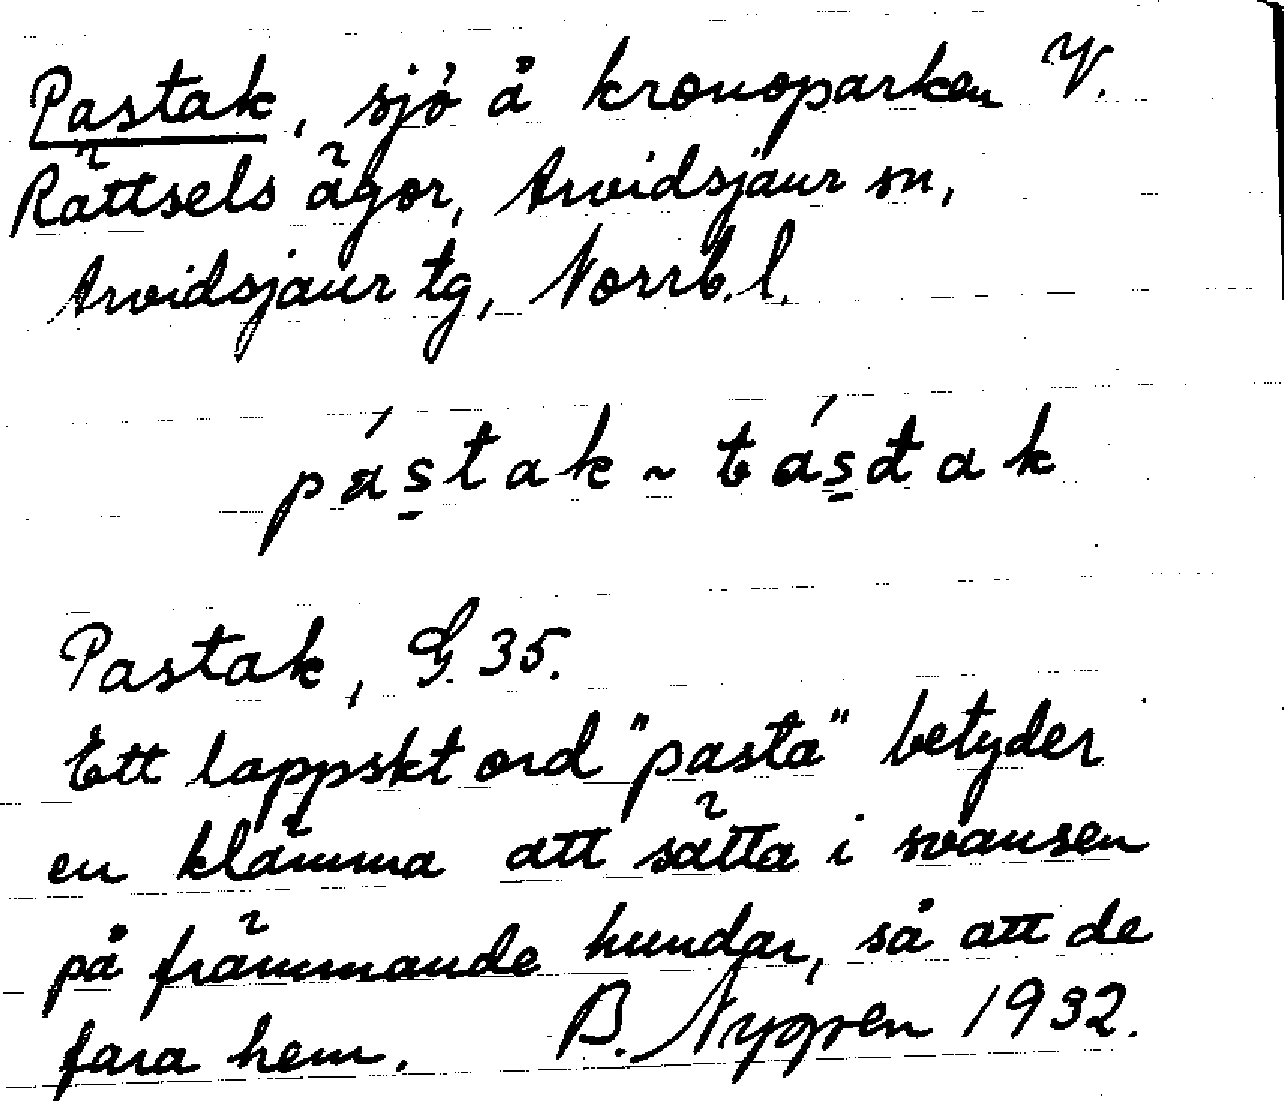 Pastak, sjö å kronoparken V.
Rättsels ägor, Arvidsjaur sn,
Arvidsjaur tg, Norrb. l.
pás̱tak ~ tás̱đak
Pastak, G. 35.
Ett lappskt ord "pasta" betyder
en klämma att sätta i svansen
på främmande hundar, så att de
fara hem. B. Nygren 1932.